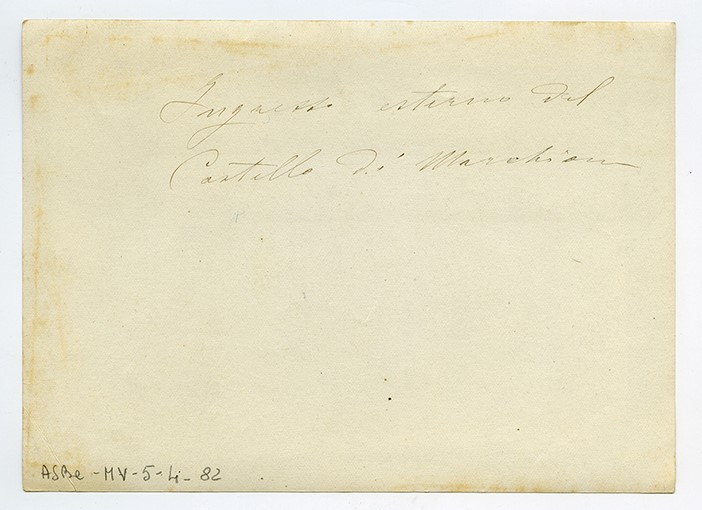 Ingresso esterno del
Castello di Marchierù
ASBe-MV-5-Li-82